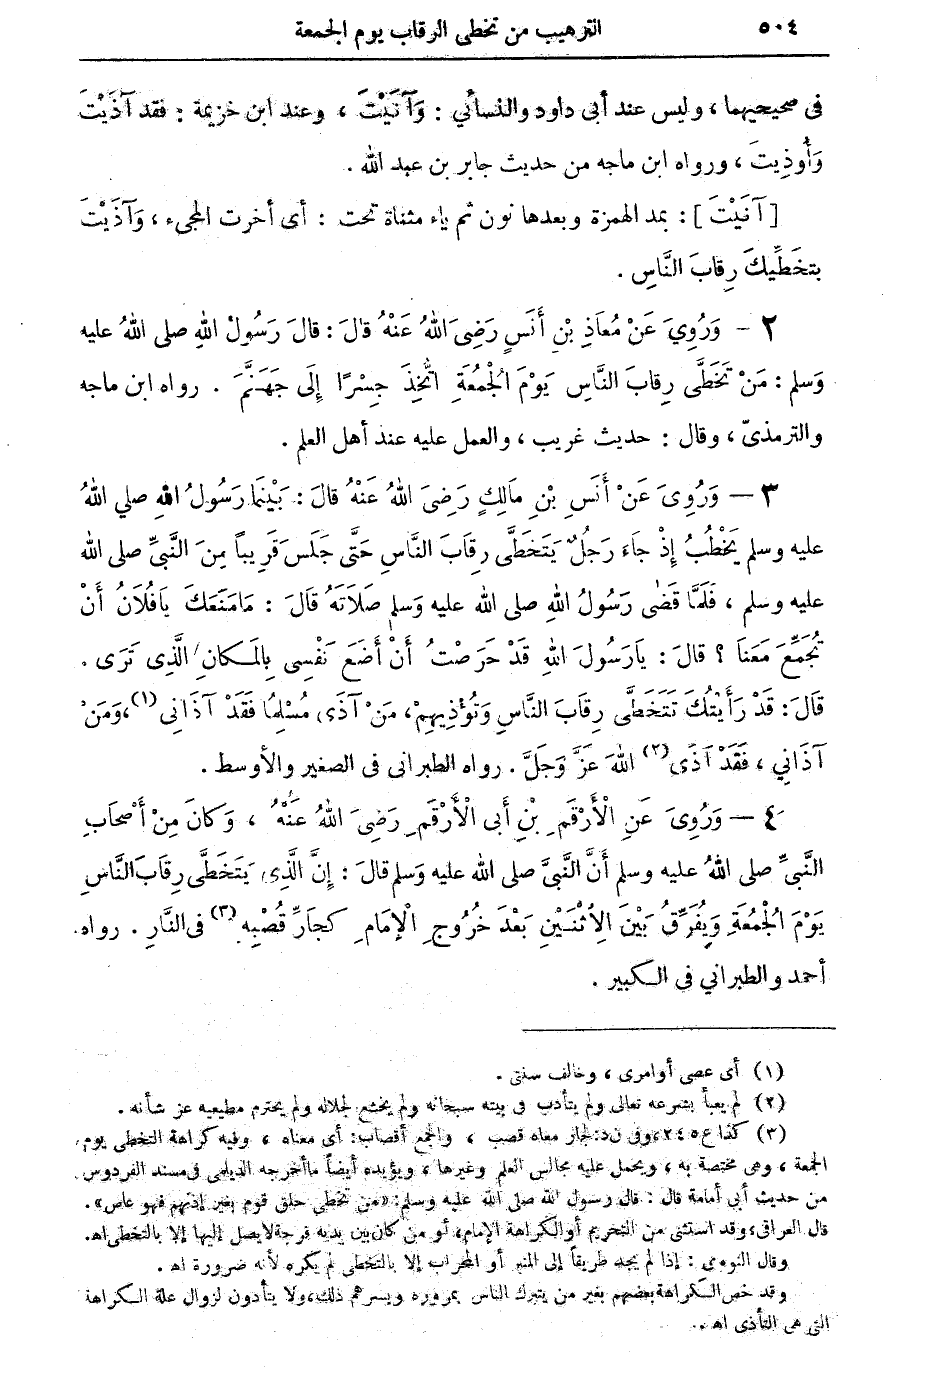 ٥٠٤ الترهيب من تخطى الرقاب يوم الجمعة
فى صحيحيهما ، وليس عند أبى داود والنسائي : وَآنَيْتَ ، وعند ابن خزيمة : فقد آذَيْتَ
وَأُوذِيتَ ، ورواه ابن ماجه من حديث جابر بن عبد الله .
[ آنَيْتَ ] : بمد الهمزة وبعدها نون ثم ياء مثناة تحت : أى أخرت المجيء ، وَآذَيْتَ
بتخَطِّيكَ رِقابَ النَّاسِ .
٢ - وَرُوِيَ عَنْ مُعَاذِ بْنِ أَنَسٍ رَضِىَ اللهُ عَنْهُ قالَ : قالَ رَسُولُ اللهِ صلى اللهُ عليه
وَسلم : مَنْ تَخَطَّى رِقابَ النَّاسِ يَوْمَ الْجُمُعَةِ اتَّخِذَ جِسْرًا إِلَى جَهَنَّمَ . رواه ابن ماجه
والترمذىّ ، وقال : حديث غريب ، والعمل عليه عند أهل العلم .
٣ — وَرُوِىَ عَنْ أَنَسِ بْنِ مَالِكٍ رَضِىَ اللهُ عَنْهُ قالَ : بَيْنَمَا رَسُولُ اللهِ صلي اللهُ
عليه وسلم يَخْطُبُ إِذْ جاءَ رَجُلٌ يَتَخَطَّى رِقابَ النَّاسِ حَتَّى جَلَسَ قَرِيباً مِنَ النَّبىِّ صلى الله
عليه وسلم ، فَلَمَّا قَضٰى رَسُولُ اللهِ صلى الله عليه وَسلم صَلاَتَهُ قالَ : مَامَنَعَكَ يَافُلَانُ أَنْ
تُجَمِّعَ مَعَنَا ؟ قالَ : يَارَسُولَ اللهِ قَدْ حَرَصْتُ أَنْ أَضَعَ نَفْسِى بِالْمَكانِ الَّذِى تَرَى .
قَالَ : قَدْ رَأَيْتُكَ تَتَخَطَّى رِقابَ النَّاسِ وَتُؤْذِيهِمْ ، مَنْ آذَى مُسْلِمًا فَقَدْ آذَانِي (١) ، وَمَنْ
آذَانِي ، فَقَدْ آذَى (٢) اللهَ عَزَّ وَجَلَّ . رواه الطبرانى فى الصغير والأوسط .
٤ — وَرُوِىَ عَنِ الْأَرْقَمِ بْنِ أبى الْأَرْقَمِ رَضِىَ اللهُ عَنْهُ ، وَكانَ مِنْ أَصْحَابِ
النَّبىِّ صلى اللهُ عليه وسلم أَنَّ النَّبىَّ صلى الله عليه وَسلم قالَ : إِنَّ الَّذِى يَتَخَطَّى رِقابَ النَّاسِ
يَوْمَ الْجُمْعَةِ وَيُفَرِّقُ بَيْنَ الِاثْنَيْنِ بَعْدَ خُرُوجِ الْإِمَامِ كَجَارِّ قُصْبِهِ (٣) فى النَّارِ . رواه
أحمد والطبراني فى الكبير .
(١) أى عصى أوامرى ، وخالف سنتى .
(٢) لم يعبأ بشرعه تعالى ولم يتأدب فى بيته سبحانه ولم يخشع لجلاله ولم يحترم مطيعيه عز شأنه .
(٣) كذا ع ٢٤٥، وفى ن د: لجار معاه قصب ، والجمع أقصاب: أى معناه ، وفيه كراهة التخطى يوم
الجمعة ، وهى مختصة به ، ويحمل عليه مجالس العلم وغيرها ، ويؤيده أيضاً ما أخرجه الديلمى فى مسند الفردوس
من حديث أبى أمامة قال : قال رسول لله صلى الله عليه وسلم: «من تخطى حلق قوم بغير إذنهم فهو عاص».
قال العراقى، وقد استثنى من التحريم أو الكراهة الإمام، أو من كان بين يديه فرجة لايصل إليها إلا بالتخطى اهـ.
وقال النووى : إذا لم يجد طريقاً إلى المنبر أو المحراب إلا بالتخطى لم يكره لأنه ضرورة اهـ .
وقد خص الكراهة بعضهم بغير من يتبرك الناس بمروره ويسرهم ذلك، ولا يتأذون لزوال علة الكراهة
التى هى التأذى اهـ .